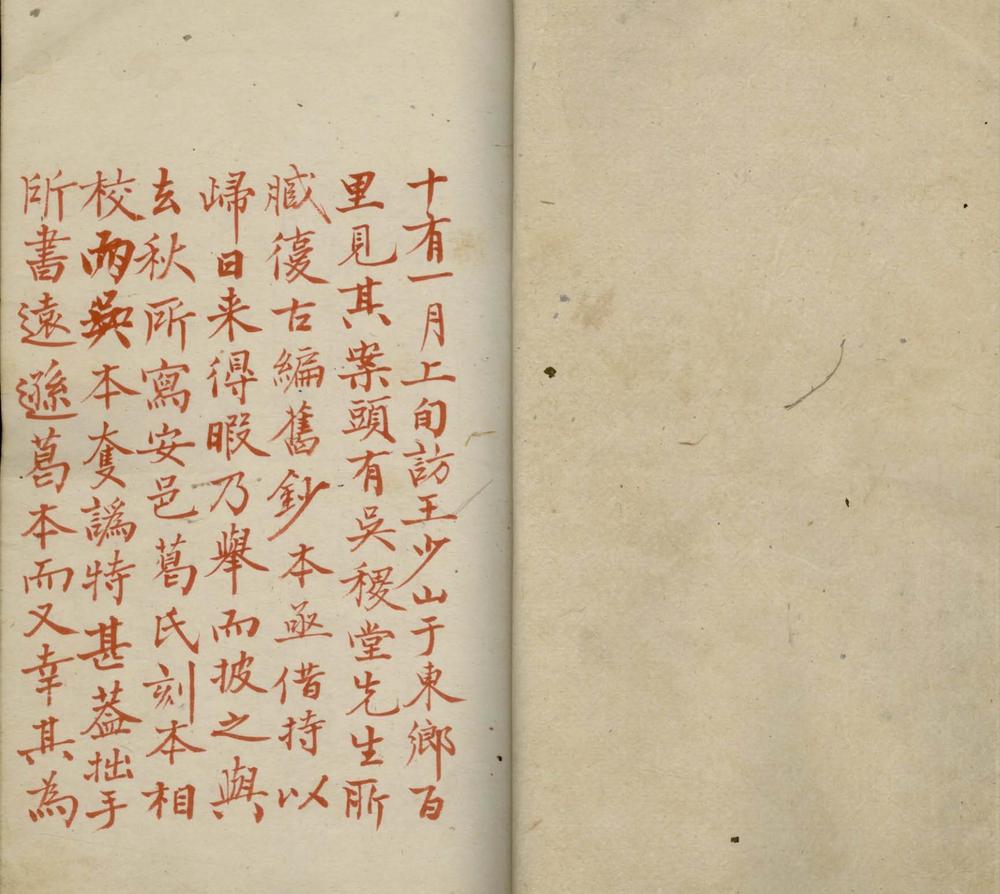 十有一月上旬訪王少山于東鄉百
里見其案頭有吳稷堂先生所
臧復古編舊鈔本亟借持以
歸日来得暇乃舉而披之與
去秋所寫安邑葛氏刻本相
校兩吳本奪譌特甚蓋拙手
所書遠遜葛本而又幸其為